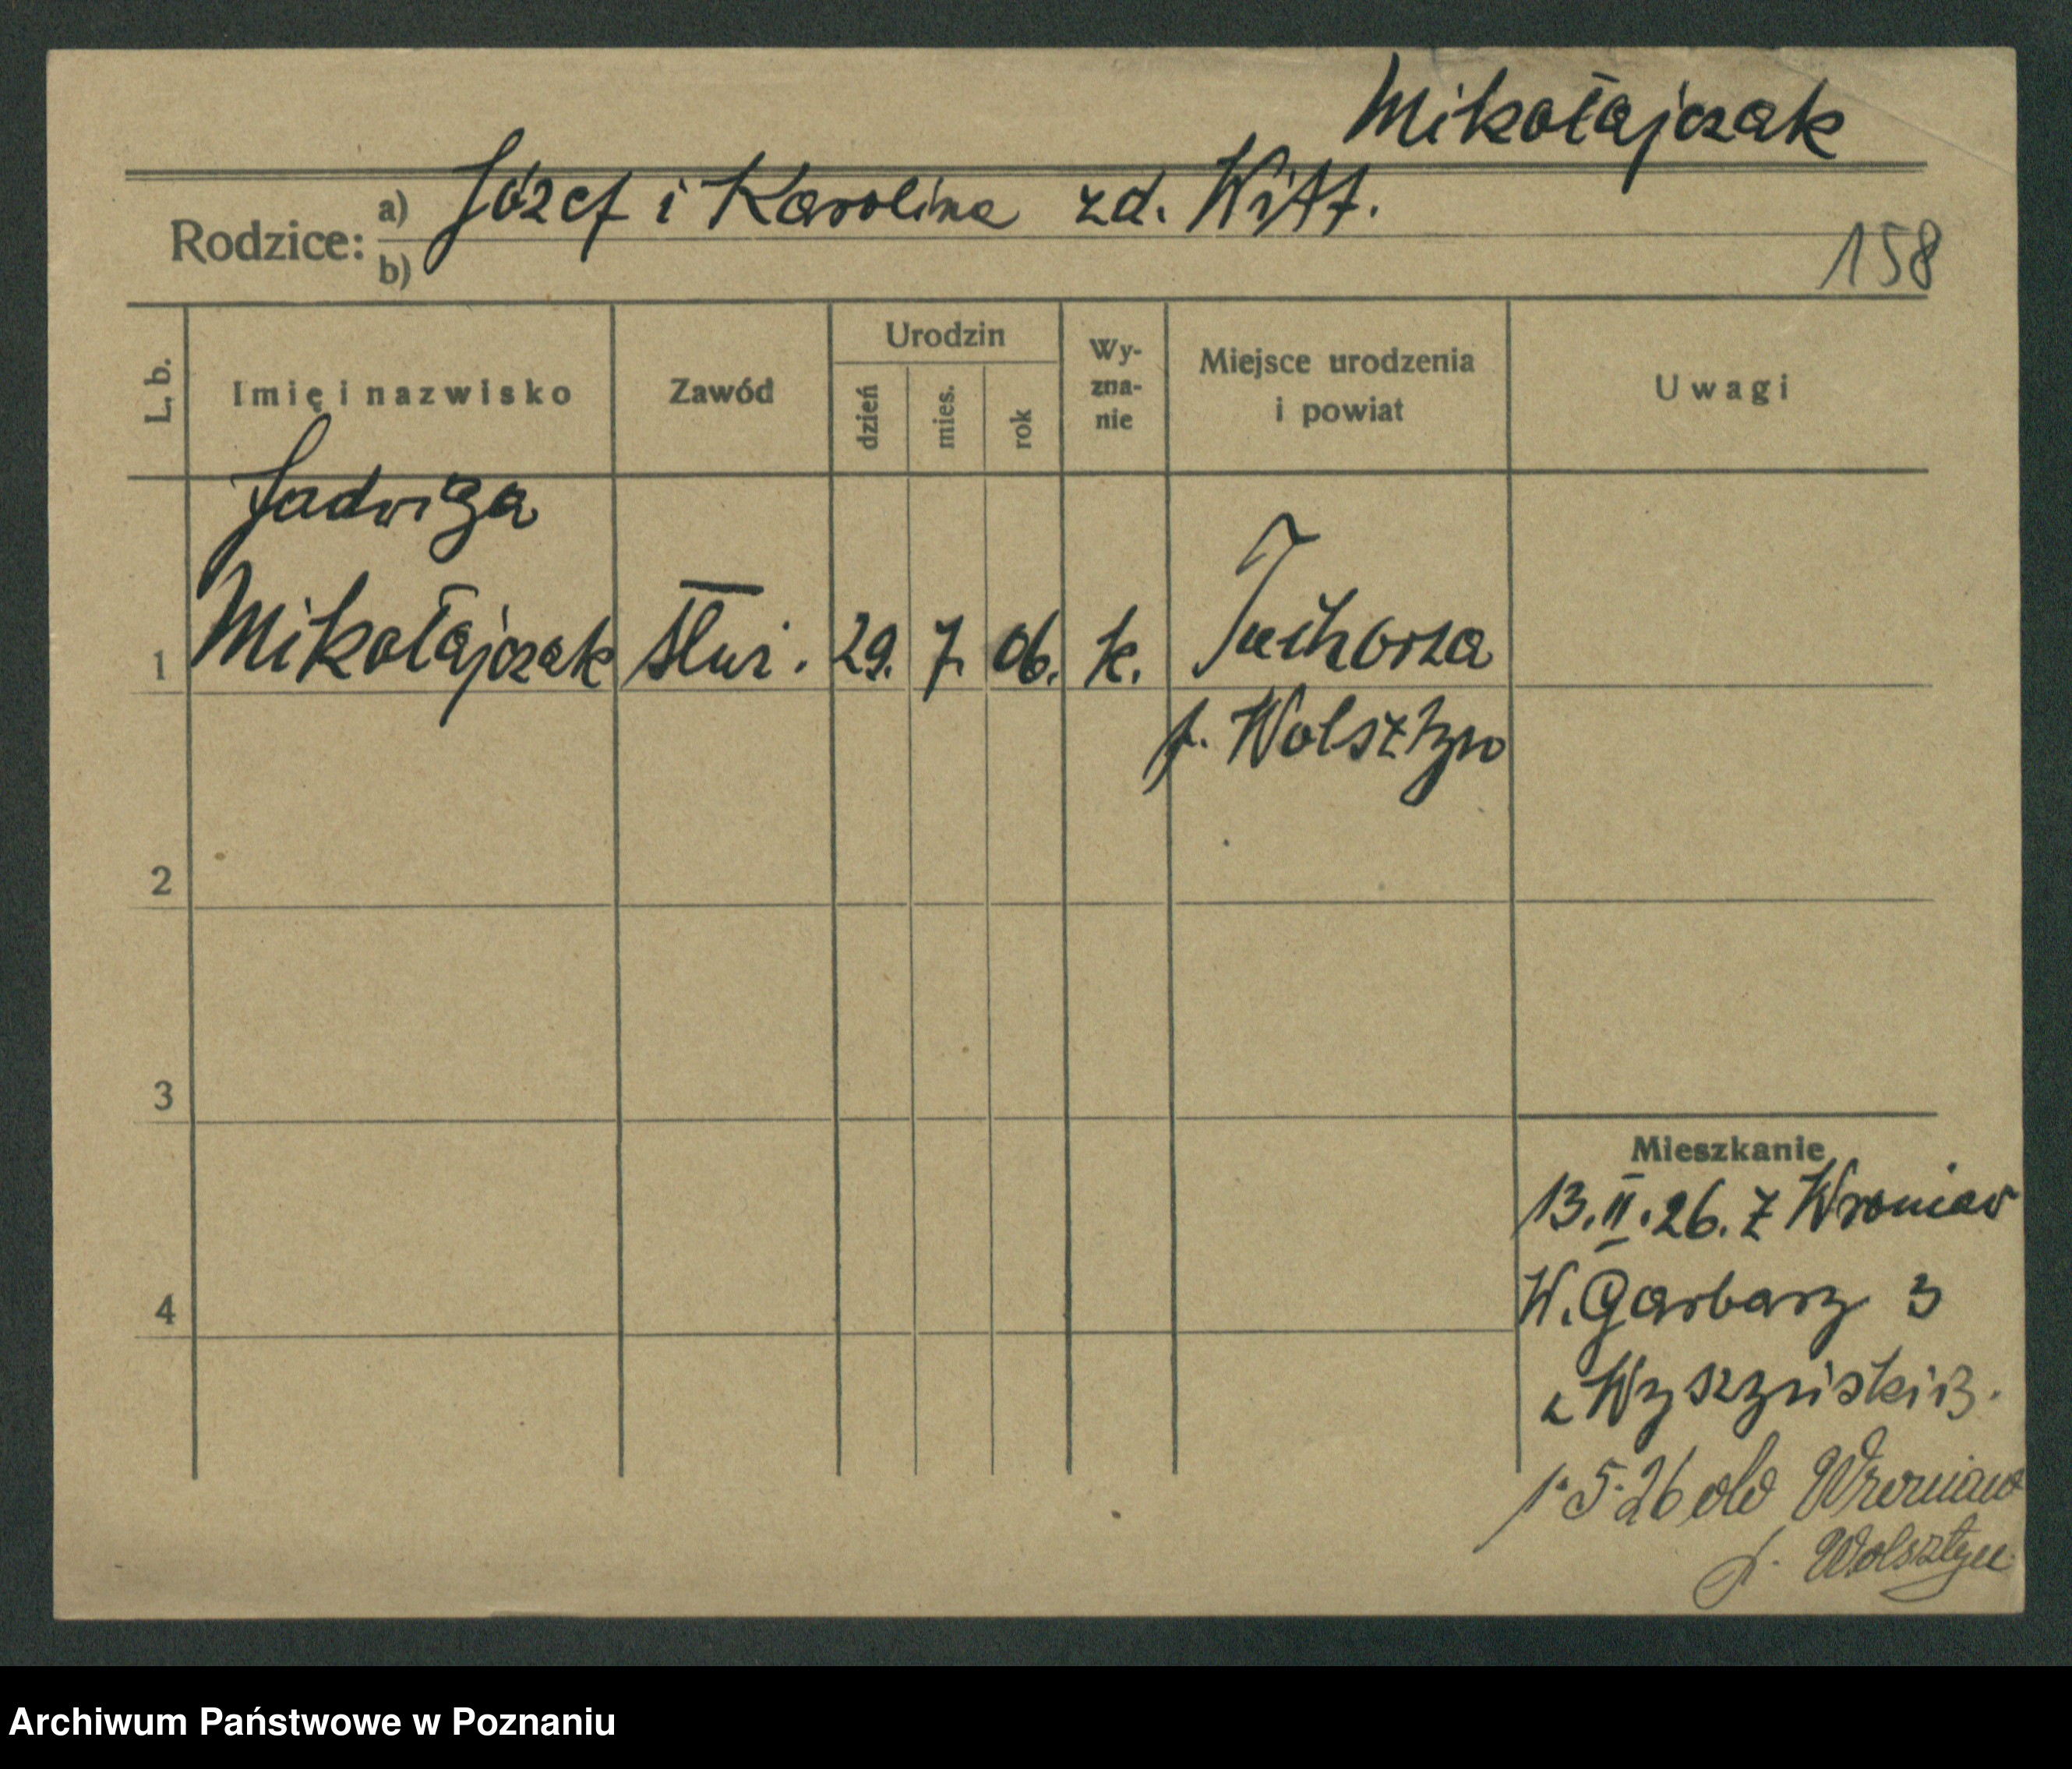 Mikołajczak
Rodzice: a) Józef i Karolina zd. Witt.
b)
158
L. b.
Imię i nazwisko
Zawód
Urodzin
dzień
mies.
rok
Wy-
zna-
nie
Miejsce urodzenia
i powiat
Uwagi
Jadwiga
1 Mikołajczak służ. 29. 7. 06. k. Tuchorza
p. Wolsztyn
2
3
4
Mieszkanie
13.II.26. z Wroniaw
W. Garbary 3
u Wyszyński 13.
1.5.26 do Wroniaw
p. Wolsztyn
Archiwum Państwowe w Poznaniu